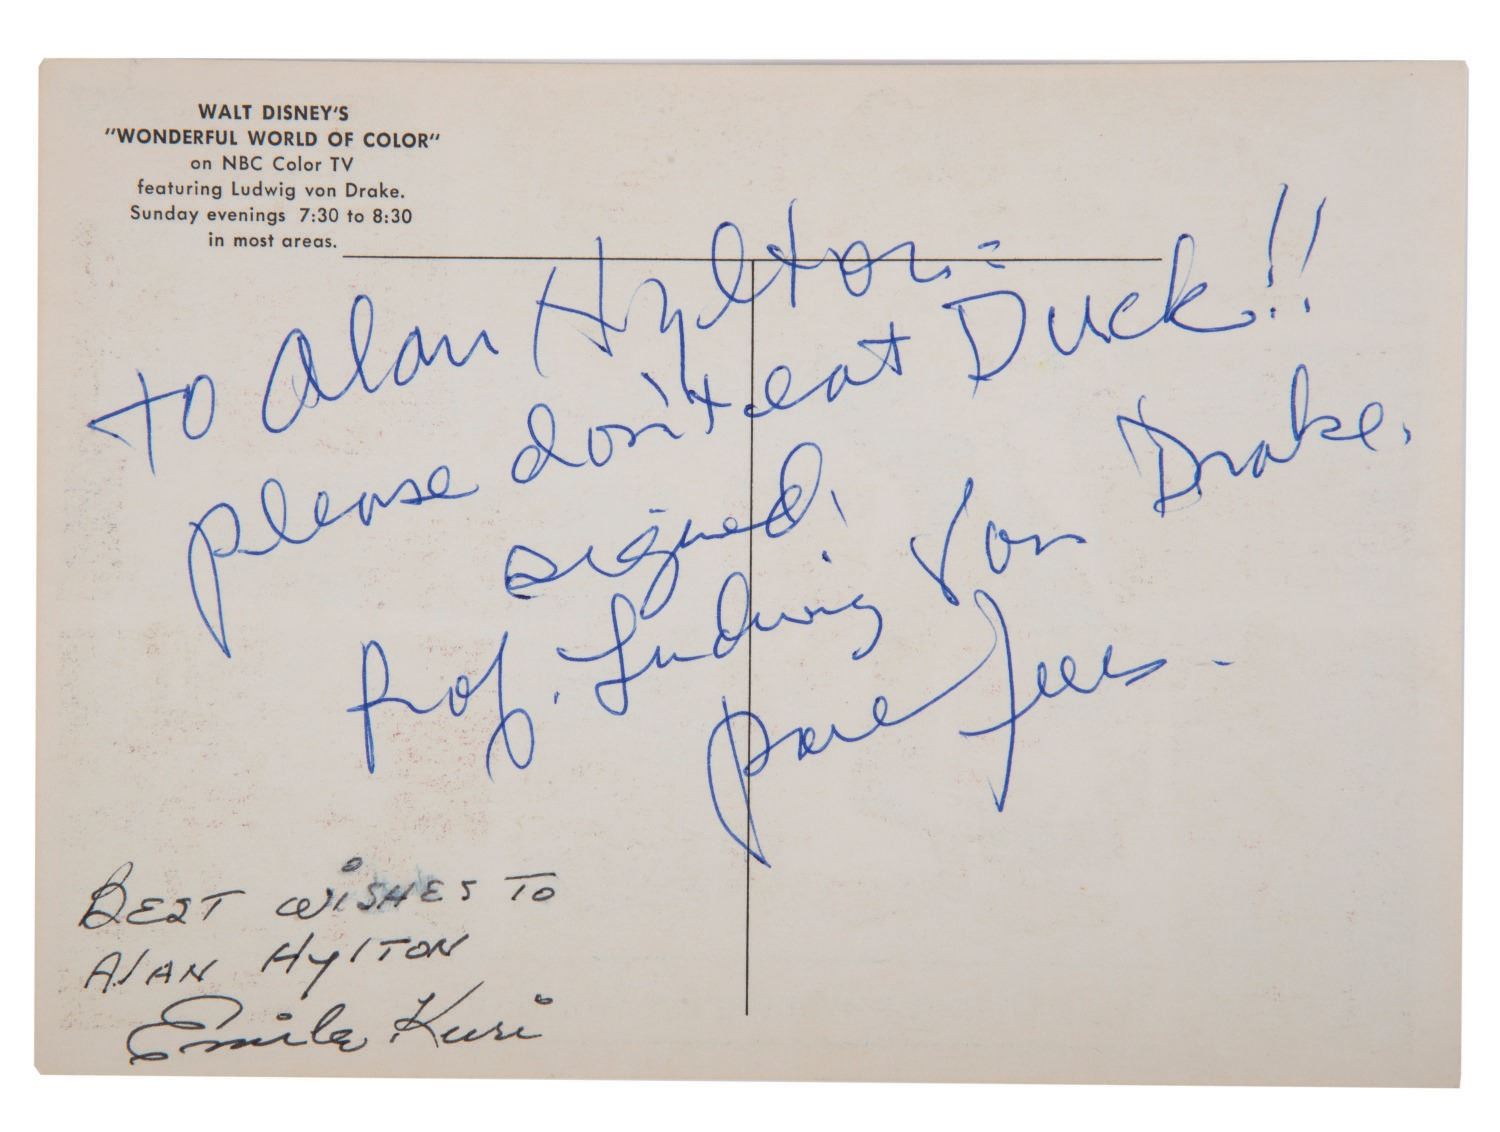 WALT DISNEY'S
"WONDERFUL WORLD OF COLOR"
on NBC Color TV
featuring Ludwig von Drake.
Sunday evenings 7:30 to 8:30
in most areas.
to Alan Hylton:-
please don't eat Duck!!
signed,
Prof. Ludwig Von Drake.
BEST WISHES TO
AlAN HylTON
Emile Kuri